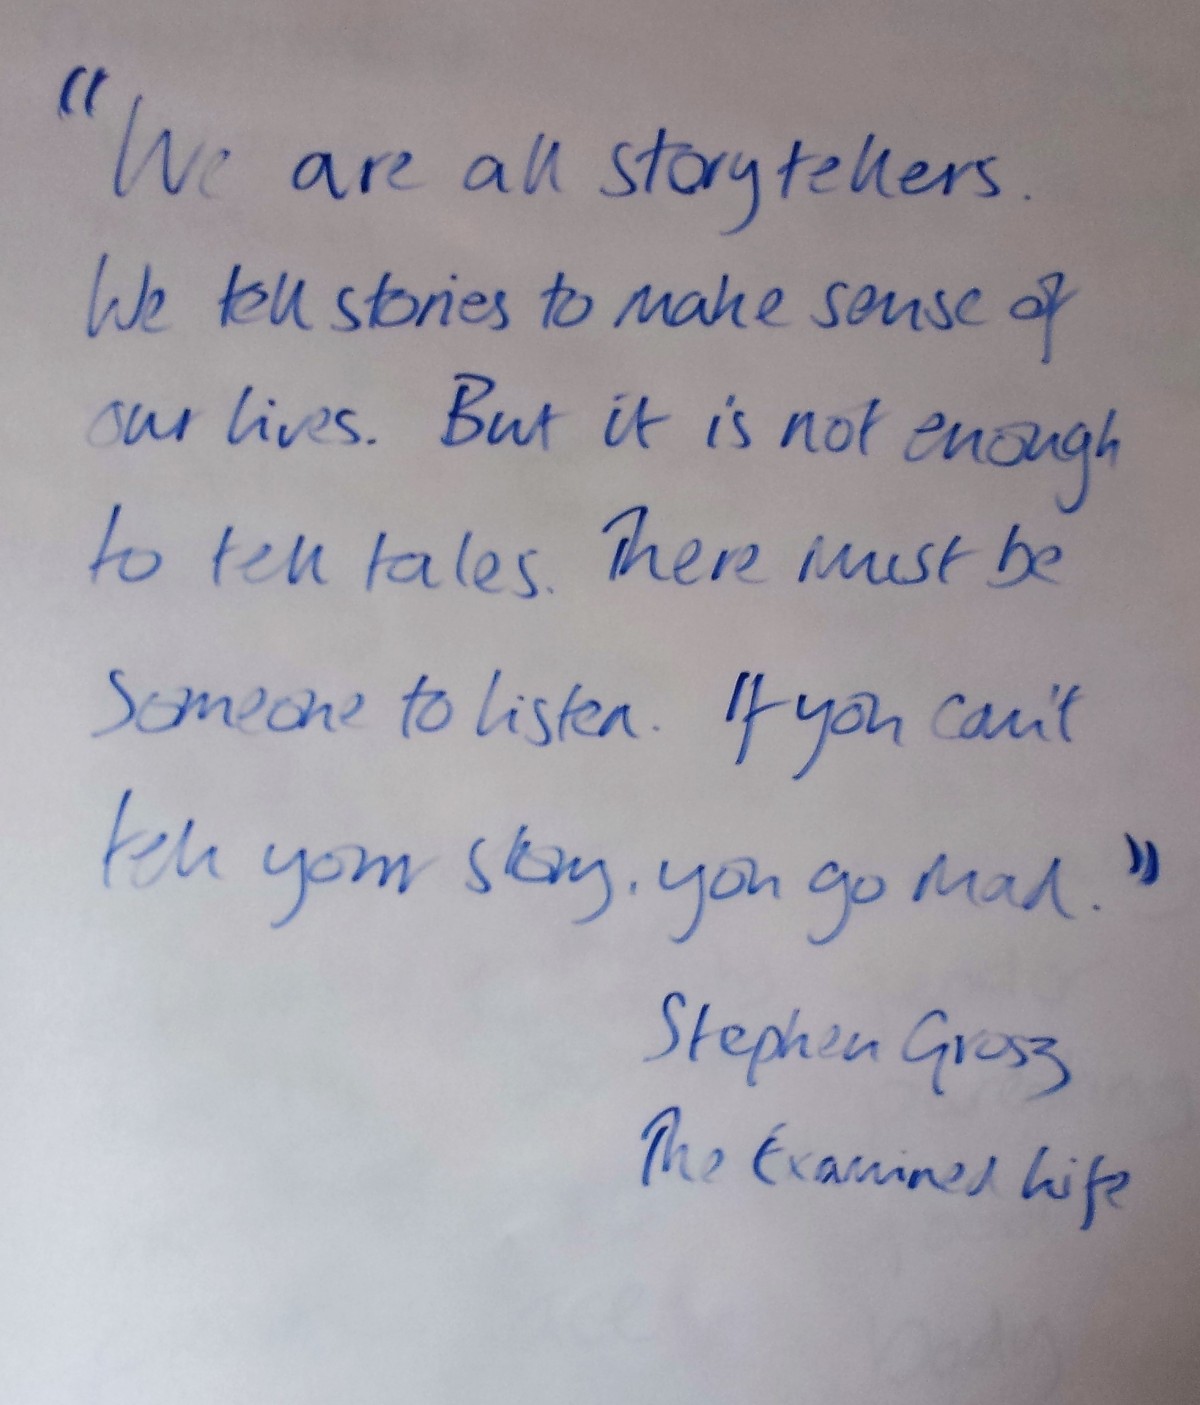 "We are all storytellers.
We tell stories to make sense of
our lives. But it is not enough
to tell tales. There must be
Someone to listen. If you can't
tell your story, you go mad."
Stephen Grosz
The Examined Life
body